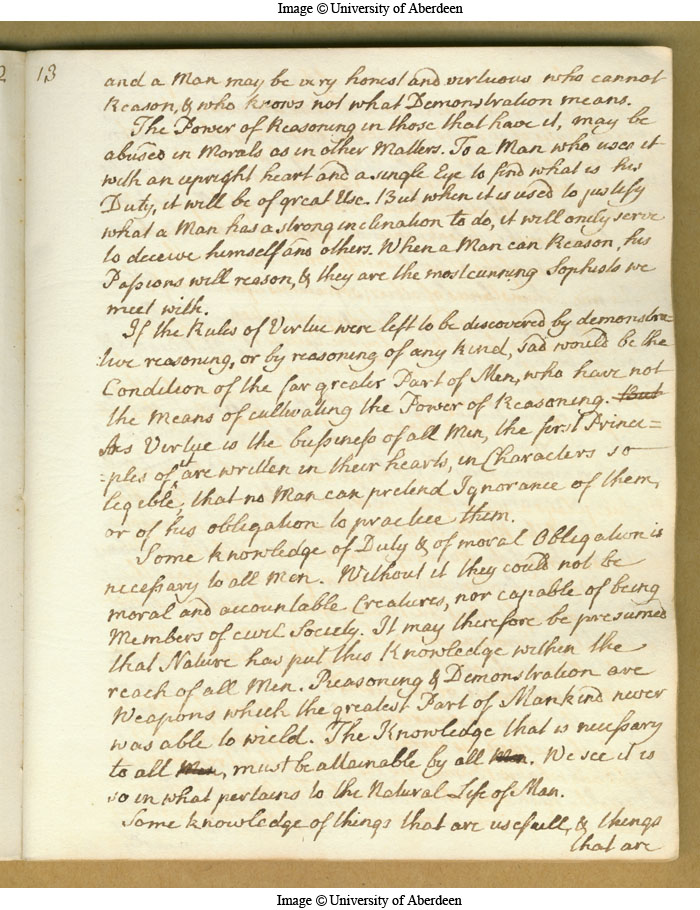 Image © University of Aberdeen
2
13
and a Man may be very honest and virtuous who cannot
Reason, & who knows not what Demonstration means.
The Power of Reasoning in those that have it, may be
abused in Morals as in other Matters. To a Man who uses it
with an upright heart and a single Eye to find what is his
Duty, it will be of great Use. But when it is used to justify
what a Man has a strong inclination to do, it will only serve
to deceive himself and others. When a Man can Reason, his
Passions will reason, & they are the most cunning Sophists we
meet with.
If the Rules of Virtue were left to be discovered by demonstra=
tive reasoning, or by reasoning of any kind, sad would be the
Condition of the far greater Part of Men, who have not
the Means of cultivating the Power of Reasoning. But
As Virtue is the business of all Men, the first Princi=
=ples of it are written in their hearts, in Characters so
legible, that no Man can pretend Ignorance of them,
or of his obligation to practice them.
Some knowledge of Duty & of moral Obligation is
necessary to all Men. Without it they could not be
moral and accountable Creatures, nor capable of being
Members of civil Society. It may therefore be presumed
that Nature has put this Knowledge within the
reach of all Men. Reasoning & Demonstration are
Weapons which the greatest Part of Mankind never
was able to wield. The Knowledge that is necessary
to all Men, must be attainable by all Men. We see it is
so in what pertains to the Natural Life of Man.
Some knowledge of things that are usefull, & things
that are
Image © University of Aberdeen